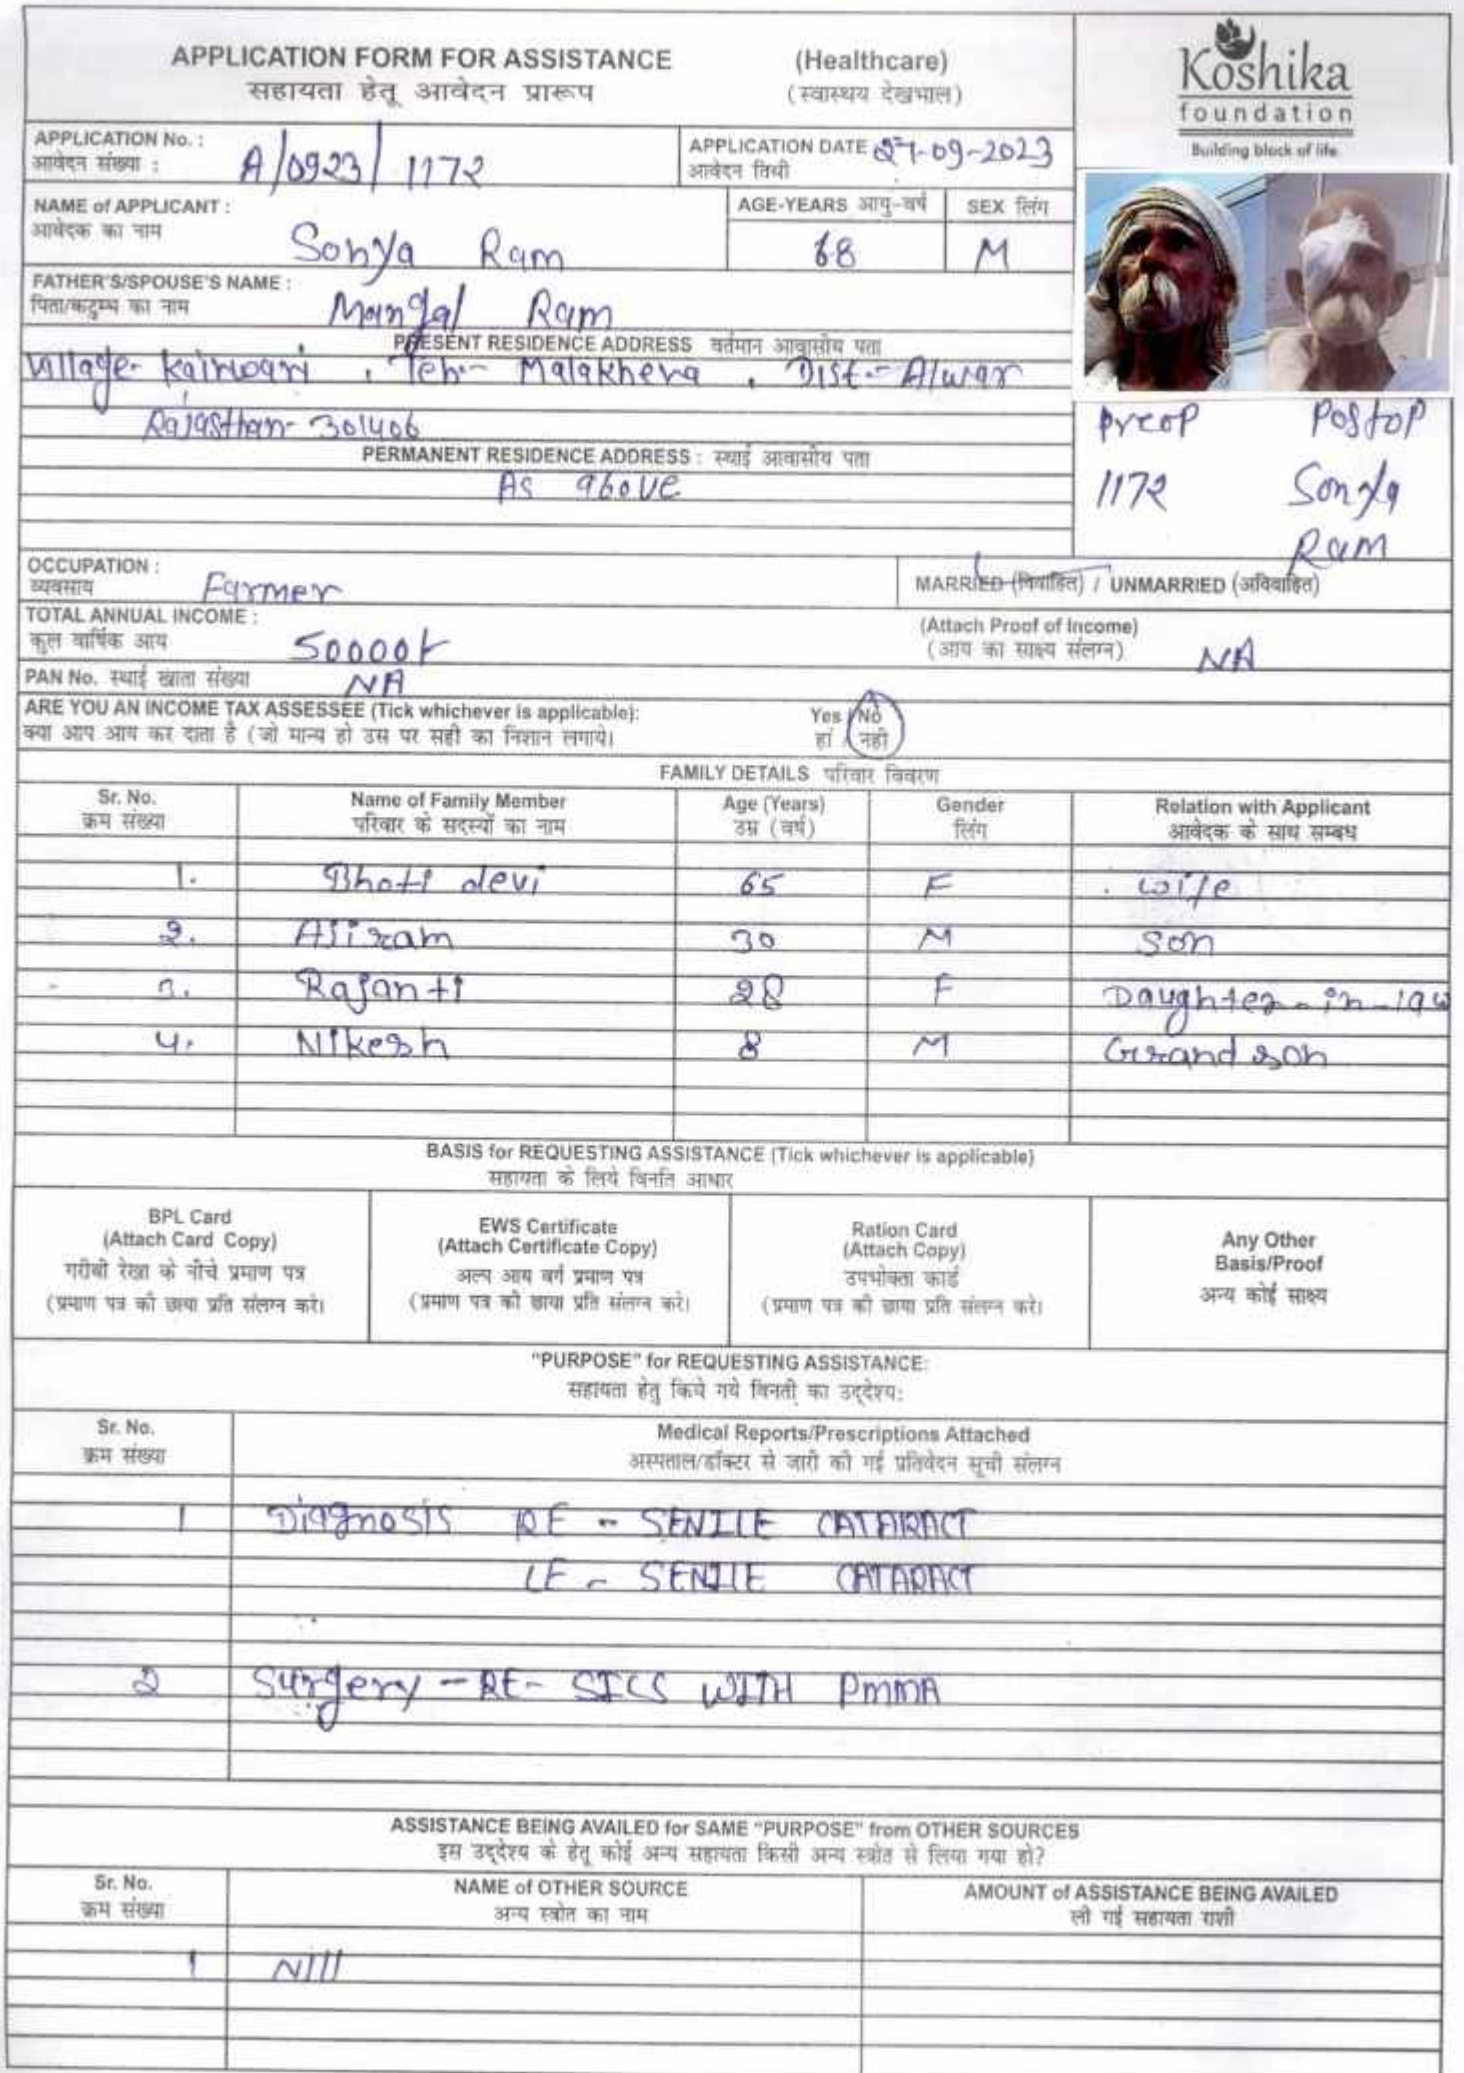 APPLICATION FORM FOR ASSISTANCE (Healthcare)
सहायता हेतू आवेदन प्रारूप (स्वास्थय देखभाल)
Koshika
foundation
Building block of life
APPLICATION No. : A/0923/1172
आवेदन संख्या :
APPLICATION DATE 27-09-2023
आवेदन तिथी
NAME of APPLICANT : Sonya Ram
आवेदक का नाम
AGE-YEARS आयु-वर्ष 68
SEX लिंग M
FATHER'S/SPOUSE'S NAME : Mangal Ram
पिता/कटुम्ब का नाम
PRESENT RESIDENCE ADDRESS वर्तमान आवासीय पता
Village- Kairwari , Teh:- Malakhera , Dist:- Alwar
Rajasthan- 301406
PERMANENT RESIDENCE ADDRESS : स्थाई आवासीय पता
As above
Preop Postop
1172 Sonya
Ram
OCCUPATION : Farmer
व्यवसाय
MARRIED (विवाहित) / UNMARRIED (अविवाहित)
TOTAL ANNUAL INCOME : 50000/-
कुल वार्षिक आय
(Attach Proof of Income) NA
(आय का साक्ष्य संलग्न)
PAN No. स्थाई खाता संख्या NA
ARE YOU AN INCOME TAX ASSESSEE (Tick whichever is applicable): Yes / No
क्या आप आय कर दाता है (जो मान्य हो उस पर सही का निशान लगाये। हां / नही
FAMILY DETAILS परिवार विवरण
Sr. No. Name of Family Member Age (Years) Gender Relation with Applicant
क्रम संख्या परिवार के सदस्यों का नाम उम्र (वर्ष) लिंग आवेदक के साथ सम्बध
1. Bhoti devi 65 F wife
2. Ajiram 30 M Son
3. Rajanti 28 F Daughter-in-law
4. Nikesh 8 M Grand son
BASIS for REQUESTING ASSISTANCE (Tick whichever is applicable)
सहायता के लिये विनति आधार
BPL Card
(Attach Card Copy)
गरीबी रेखा के नीचे प्रमाण पत्र
(प्रमाण पत्र की छाया प्रति संलग्न करे।
EWS Certificate
(Attach Certificate Copy)
अल्प आय वर्ग प्रमाण पत्र
(प्रमाण पत्र की छाया प्रति संलग्न करे।
Ration Card
(Attach Copy)
उपभोक्ता कार्ड
(प्रमाण पत्र की छाया प्रति संलग्न करे।
Any Other
Basis/Proof
अन्य कोई साक्ष्य
"PURPOSE" for REQUESTING ASSISTANCE:
सहायता हेतु किये गये विनती का उद्देश्य:
Sr. No. Medical Reports/Prescriptions Attached
क्रम संख्या अस्पताल/डॉक्टर से जारी की गई प्रतिवेदन सूची संलग्न
1 Diagnosis RE - SENILE CATARACT
LE - SENILE CATARACT
2 Surgery - RE- SICS WITH PMMA
ASSISTANCE BEING AVAILED for SAME "PURPOSE" from OTHER SOURCES
इस उद्देश्य के हेतू कोई अन्य सहायता किसी अन्य स्त्रोत से लिया गया हो?
Sr. No. NAME of OTHER SOURCE AMOUNT of ASSISTANCE BEING AVAILED
क्रम संख्या अन्य स्त्रोत का नाम ली गई सहायता राशी
1 Nill